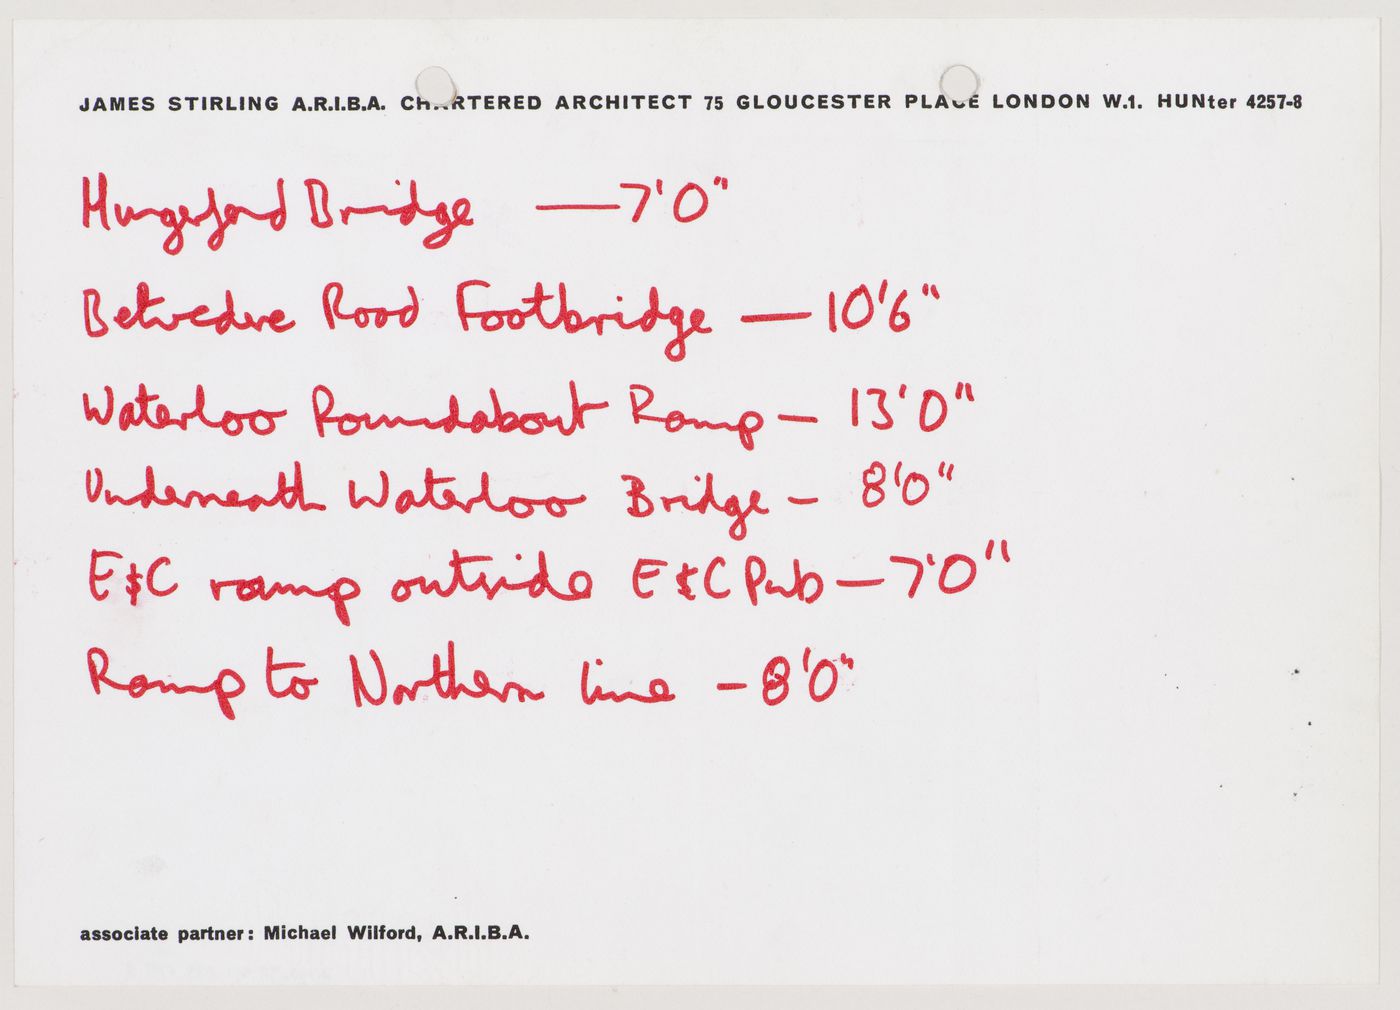 JAMES STIRLING A.R.I.B.A. CHARTERED ARCHITECT 75 GLOUCESTER PLACE LONDON W.1. HUNter 4257-8
Hungerford Bridge — 7'0"
Belvedere Road Footbridge — 10'6"
Waterloo Roundabout Ramp – 13'0"
Underneath Waterloo Bridge – 8'0"
E&C ramp outside E&C Pub – 7'0"
Ramp to Northern line – 8'0"
associate partner: Michael Wilford, A.R.I.B.A.